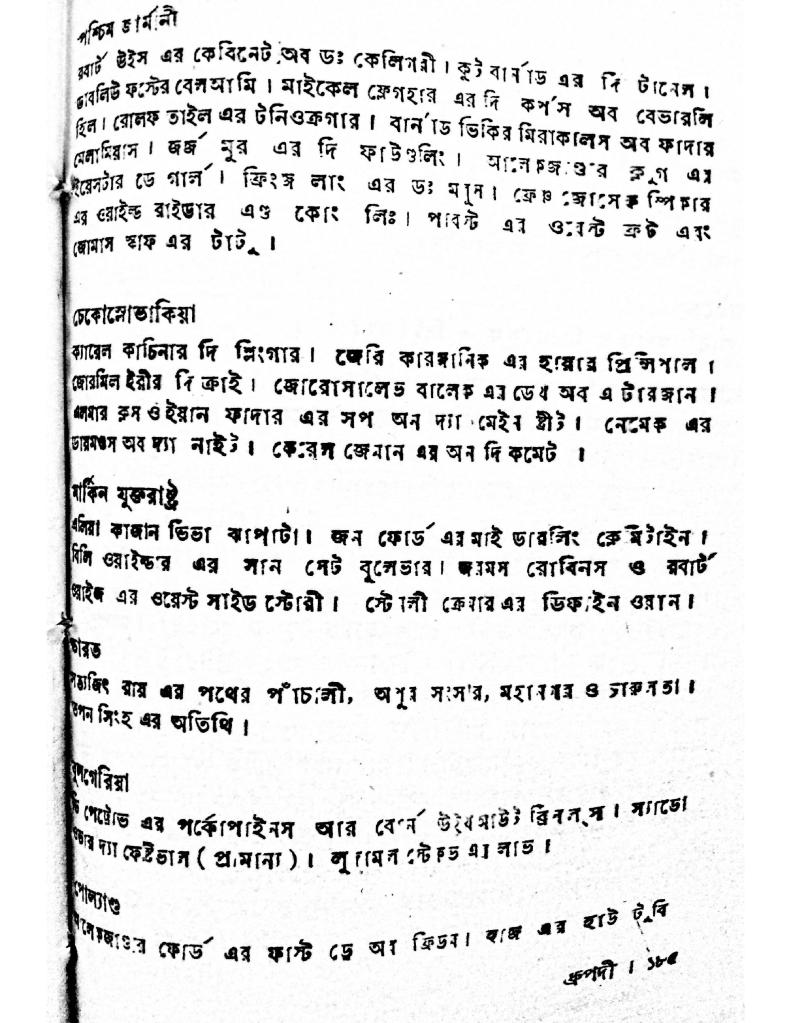 পশ্চিম জার্মানী
রবার্ট উইস এর কেবিনেট অব ডঃ কেলিগরী। কুট বার্নাড এর দি টানেল।
ডাবলিউ ফস্টের বেলআমি। মাইকেল ফ্লেগহার এর দি কর্পস অব বেভারলি
হিল। রোলফ তাইল এর টনিওক্রগার। বার্নাড ভিকির মিরাকালস অব ফাদার
মেলামিয়াস। জর্জ মুর এর দি ফাউণ্ডলিং। আলেকজাণ্ডার ক্লুগ এর
ইয়েসটার ডে গার্ল। ফ্রিৎজ লাং এর ডঃ মাবুস। ফ্রেঞ্চ জোসেফ স্পিকার
এর ওয়াইল্ড রাইডার এণ্ড কোং লিঃ। পাবস্ট এর ওয়েস্ট ফ্রন্ট এবং
জোমাস স্কাফ এর টাটু।
চেকোস্লোভাকিয়া
ক্যারেল কাচিনার দি স্লিংগার। জেরি কারঙ্গানিক এর হায়ার প্রিন্সিপাল।
জোরমিল ইরীর দি ক্রাই। জোরোসালেভ বালেক এর ডেথ অব এ টারজান।
এলমার ক্লস ও ইয়ান কাদার এর সপ অন দ্যা মেইন স্ট্রীট। নেমেক এর
ডায়মণ্ডস অব দ্যা নাইট। কেরেল জেমান এর অন দি কমেট ।
মার্কিন যুক্তরাষ্ট্র
এলিয়া কাজান ভিভা ঝাপাটা। জন ফোর্ড এর মাই ডারলিং ক্লেমেটাইন।
বিলি ওয়াইল্ডার এর সান সেট বুলেভার। জরমস রোবিনস ও রবার্ট
ওয়াইজ এর ওয়েস্ট সাইড স্টোরী। স্টেনলী ক্রেমার এর ডিফাইন ওয়ান।
ভারত
সত্যজিৎ রায় এর পথের পাঁচালী, অপুর সংসার, মহানগর ও চারুলতা।
তপন সিংহ এর অতিথি।
বুলগেরিয়া
ডি পেট্রোভ এর পর্কোপাইনস আর বোর্ন উইথআউট ব্রিনলস। স্যাডো
ওভার দ্যা ফেষ্টিভাল ( প্রামান্য )। লুদামল স্টেকভ এর লাভ।
পোল্যাণ্ড
আলেকজাণ্ডার ফোর্ড এর ফার্স্ট ডে অব ফ্রিডম। হাজ এর হাউ টু বি
ধ্রুপদী । ১৮৫